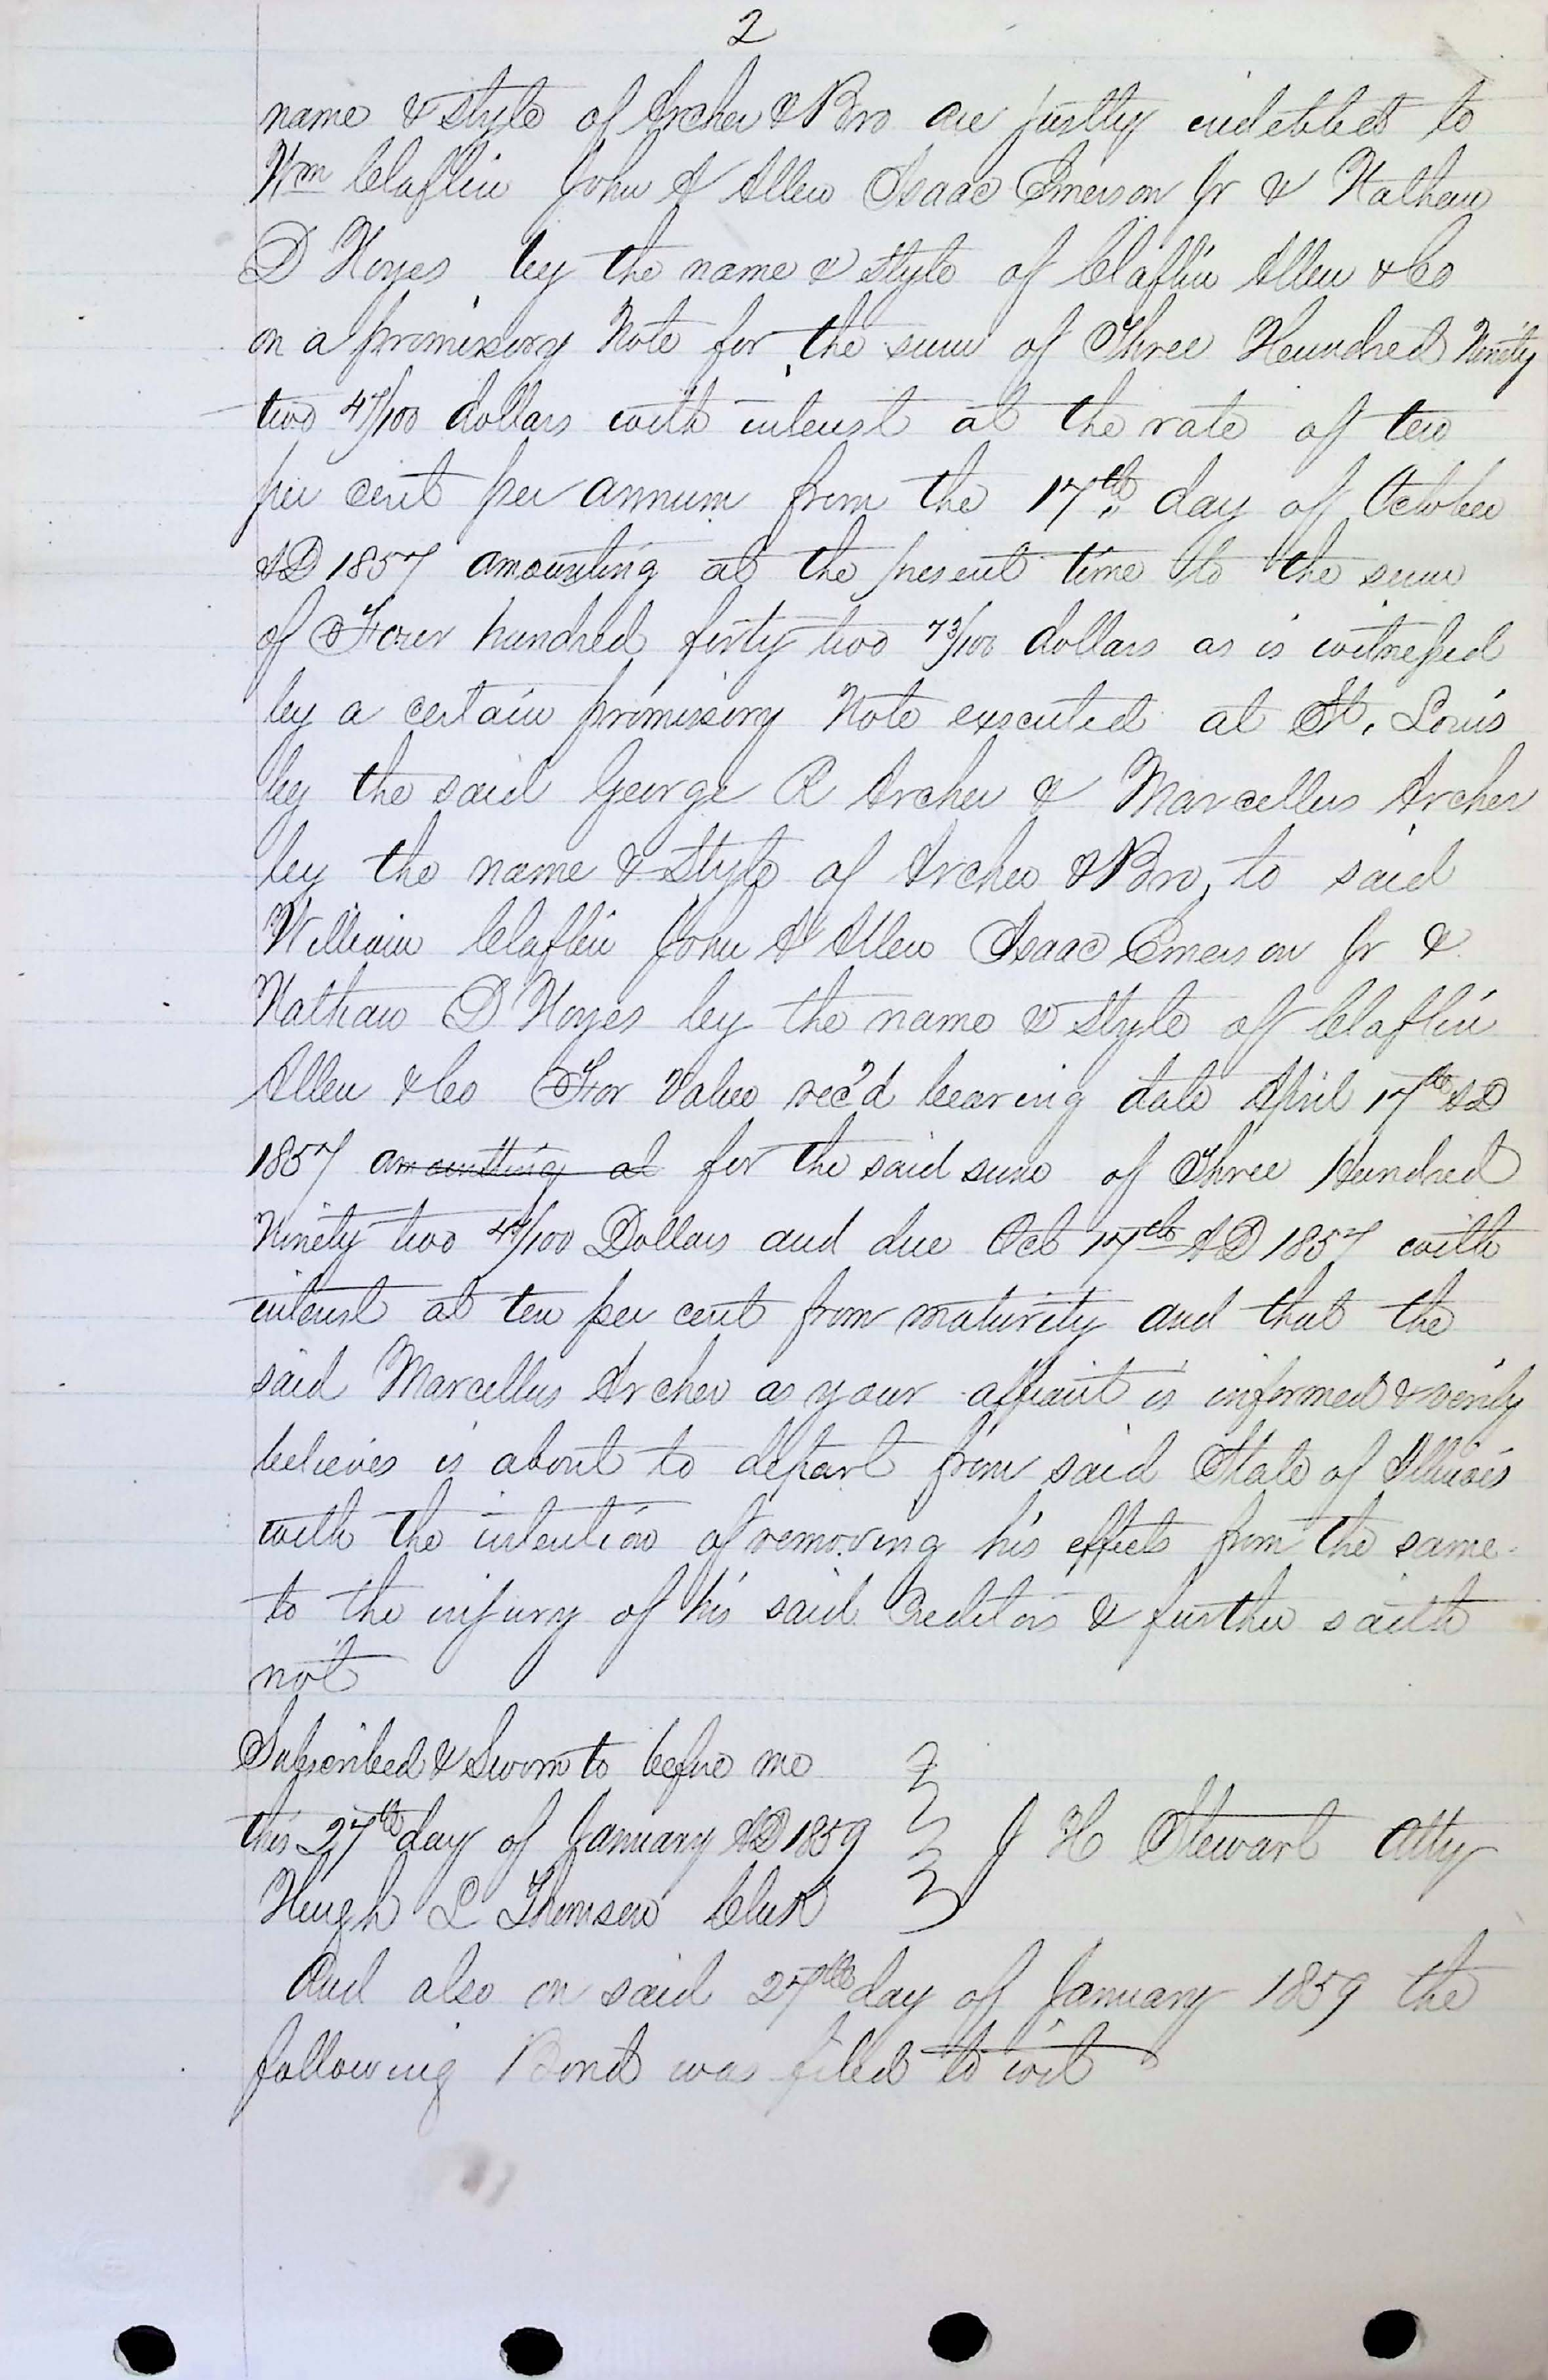 2
name & style of Archer & Bro are justly indebted to
Wm Claflin John A Allen Isaac Emerson Jr & Nathan
D Noyes by the name & style of Claflin Allen & Co
on a promissory Note for the sum of Three Hundred Ninety
two 47/100 dollars with interest at the rate of ten
per cent per annum from the 17th day of October
AD 1857 amounting at the present time to the sum
of Four hundred forty two 73/100 dollars as is witnessed
by a certain promissory Note executed at St. Louis
by the said George R Archer & Marcellus Archer
by the name & Style of Archer & Bro, to said
William Claflin John A Allen Isaac Emerson Jr &
Nathan D Noyes by the name & Style of Claflin
Allen & Co For Value rec'd bearing date April 17th AD
1857 amounting at for the said sum of Three Hundred
Ninety two 47/100 Dollars and due Oct 17th AD 1857 with
interest at ten per cent from maturity and that the
said Marcellus Archer as your affiant is informed & verily
believes is about to depart from said State of Illinois
with the intention of removing his effects from the same
to the injury of his said Creditors & further saith
not
Subscribed & Sworn to before me
this 27th day of January AD 1859 J H Stewart Atty
Hugh L Thomson Clerk
And also on said 27th day of January 1859 the
following Bond was filed to wit